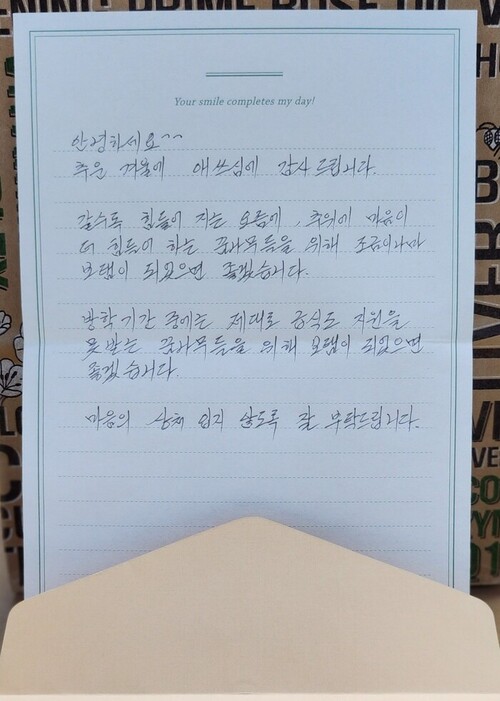 ENING PRIME ROSE OIL
Your smile completes my day!
안녕하세요~~
추운 겨울에 애쓰심에 감사드립니다.
갈수록 힘들어 지는 요즘에, 추위에 마음이
더 힘들어 하는 꿈나무들을 위해 조금이나마
보탬이 되었으면 좋겠습니다.
방학기간 중에는 제대로 급식도 지원을
못받는 꿈나무들을 위해 보탬이 되었으면
좋겠습니다.
마음의 상처 입지 않도록 잘 부탁드립니다.